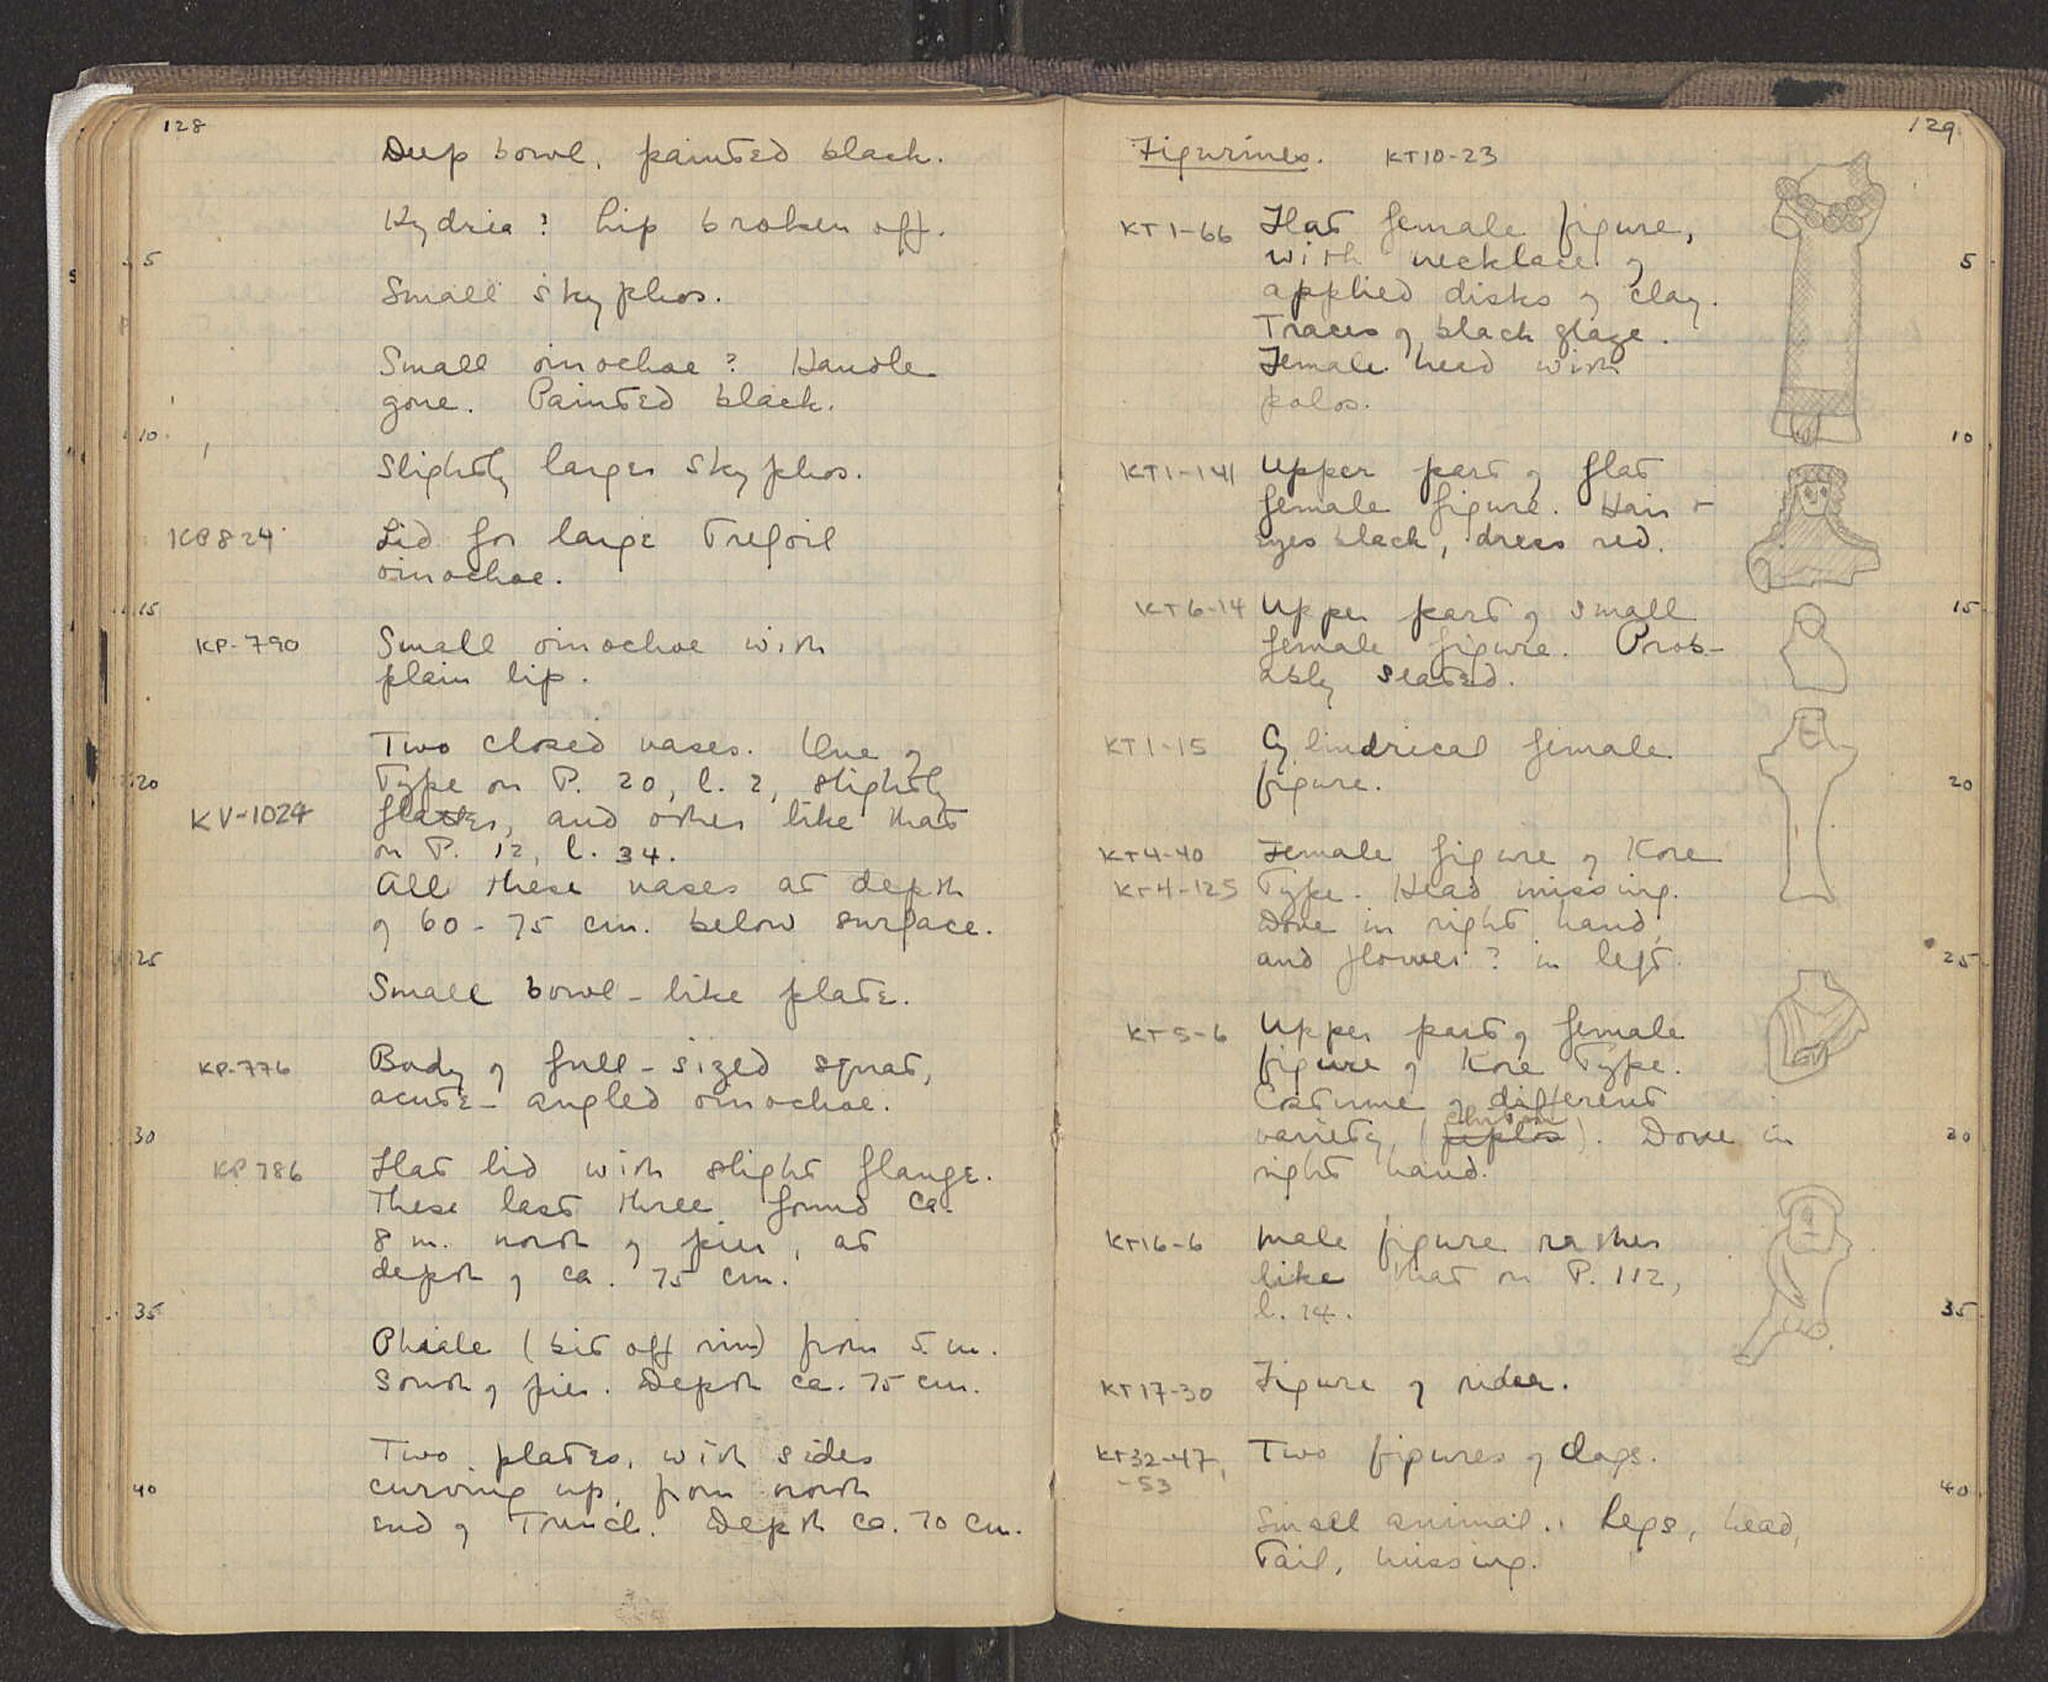 128
Deep bowl, painted black.
Hydria? Lip broken off.
5
Small skyphos.
Small oinochoe? Handle
gone. Painted black.
10
Slightly larger skyphos.
KP824 Lid for large trefoil
oinochoe.
15
KP-790 Small oinochoe with
plain lip.
Two closed vases. One of
20 type on P. 20, l. 2, slightly
KV-1024 flatter, and other like that
on P. 12, l. 34.
All these vases at depth
of 60-75 cm. below surface.
25
Small bowl-like plate.
KP-776 Body of full-sized squat,
acute-angled oinochoe.
30
KP786 Flat lid with slight flange.
These last three found ca.
8 m. north of pier, at
depth of ca. 75 cm.
35
Phiale (bit off rim) from 5 m.
South of pier. Depth ca. 75 cm.
Two plates, with sides
40 curving up, from north
end of Trench. Depth ca. 70 cm.
129
Figurines. KT10-23
KT1-66 Flat female figure,
with necklace of 5
applied disks of clay.
Traces of black glaze.
Female head with
polos.
10
KT1-141 Upper part of flat
female figure. Hair +
eyes black, dress red.
KT6-14 Upper part of small 15
female figure. Prob-
ably seated.
KT1-15 Cylindrical female
figure. 20
KT4-40 Female figure of Kore
KT4-125 Type. Head missing.
Dove in right hand,
and flower? in left. 25
KT5-6 Upper part of female
figure of Kore Type.
Costume of different
chiton
variety (peplos). Dove in 30
right hand.
KT16-6 Male figure rather
like that on P. 112,
l. 14. 35
KT17-30 Figure of rider.
KT32-47, Two figures of dogs.
-53 40
Small animal. Legs, head,
Tail, missing.